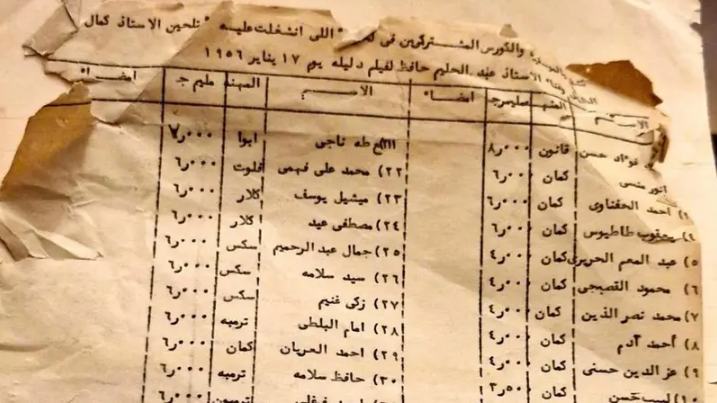 والكورس المشتركين فى لحن " اللى انشغلت عليه " تلحين الاستاذ كمال
الاستاذ عبد الحليم حافظ لفيلم دليله يوم ١٧ يناير ١٩٥٦
الاســم المهنه مليم ج امضــاء الاســم المهنه مليم ج امضــاء
فؤاد حسن قانون ٨٫٠٠٠ طه ناجى ابوا ٧٫٠٠٠
انور منسى كمان ٦٫٠٠٠ ٢٢) محمد على فهمى فلوت ٦٫٠٠٠
احمد الحفناوى كمان ٦٫٠٠٠ ٢٣) ميشيل يوسف كلار ٦٫٠٠٠
يعقوب طاطيوس كمان ٦٫٠٠٠ ٢٤) مصطفى عيد كلار ٦٫٠٠٠
٥) عبد المعم الحريرى كمان ٤٫٠٠٠ ٢٥) جمال عبد الرحيم سكس ٦٫٠٠٠
٦) محمود القصبجى كمان ٤٫٠٠٠ ٢٦) سيد سلامه سكس ٦٫٠٠٠
٧) محمد نصر الدين كمان ٤٫٠٠٠ ٢٧) زكى غنيم سكس ٦٫٠٠٠
٨) أحمد آدم كمان ٤٫٠٠٠ ٢٨) امام البلطى ترمبه ٦٫٠٠٠
٩) عز الدين حسنى كمان ٤٫٠٠٠ ٢٩) احمد العريان كمان ٦٫٠٠٠
١٠) لبيب حسن كمان ٣٫٥٠٠ ٣٠) حافظ سلامه ترمبه ٦٫٠٠٠